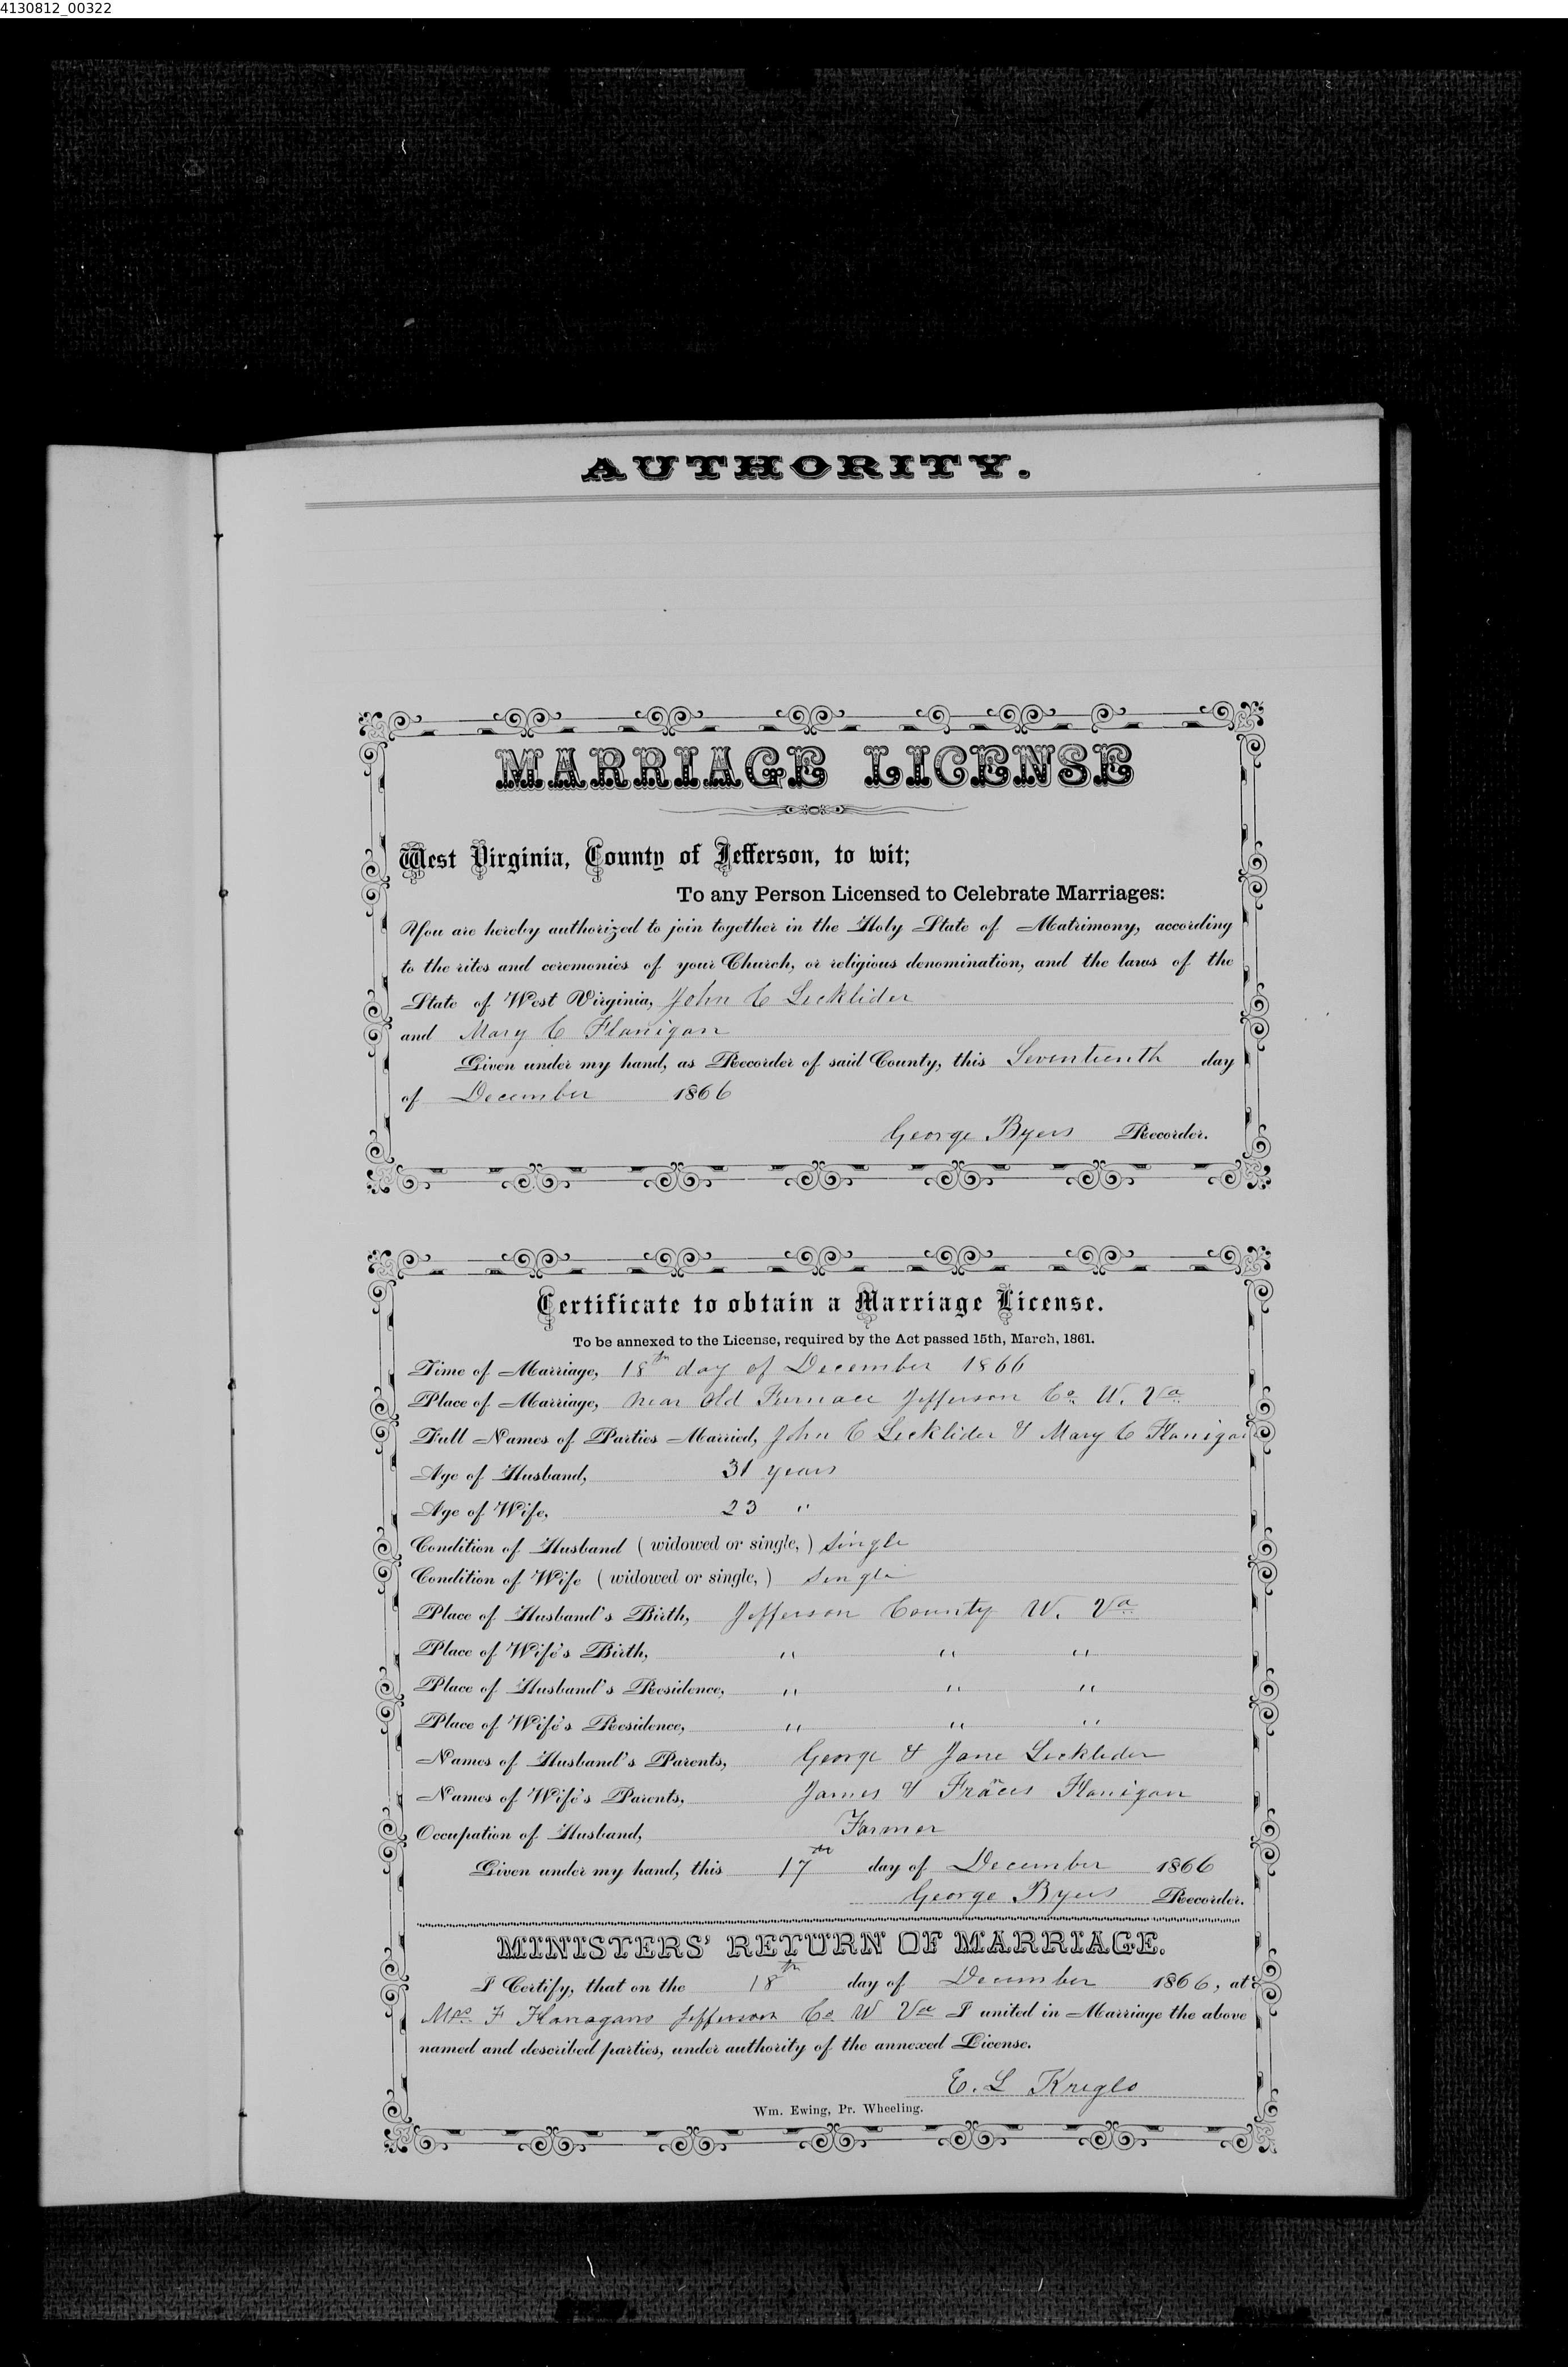 4130812_00322
AUTHORITY.
MARRIAGE LICENSE
West Virginia, County of Jefferson, to wit;
To any Person Licensed to Celebrate Marriages:
You are hereby authorized to join together in the Holy State of Matrimony, according
to the rites and ceremonies of your Church, or religious denomination, and the laws of the
State of West Virginia, John C Lecklider
and Mary C Flanigan
Given under my hand, as Recorder of said County, this Seventeenth day
of December 1866
George Byers Recorder.
Certificate to obtain a Marriage License.
To be annexed to the License, required by the Act passed 15th, March, 1861.
Time of Marriage, 18th day of December 1866
Place of Marriage, near Old Furnace Jefferson Co. W. Va
Full Names of Parties Married, John C Lecklider & Mary C Flanigan
Age of Husband, 31 years
Age of Wife, 23 "
Condition of Husband (widowed or single,) Single
Condition of Wife (widowed or single,) Single
Place of Husband's Birth, Jefferson County W. Va
Place of Wife's Birth, " " "
Place of Husband's Residence, " " "
Place of Wife's Residence, " " "
Names of Husband's Parents, George & Jane Lecklider
Names of Wife's Parents, James & Frances Flanigan
Occupation of Husband, Farmer
Given under my hand, this 17th day of December 1866
George Byers Recorder.
MINISTERS' RETURN OF MARRIAGE.
I Certify, that on the 18th day of December 1866, at
Mrs. F Flanagans Jefferson Co. W Va I united in Marriage the above
named and described parties, under authority of the annexed License.
E. L Kreglo
Wm. Ewing, Pr. Wheeling.